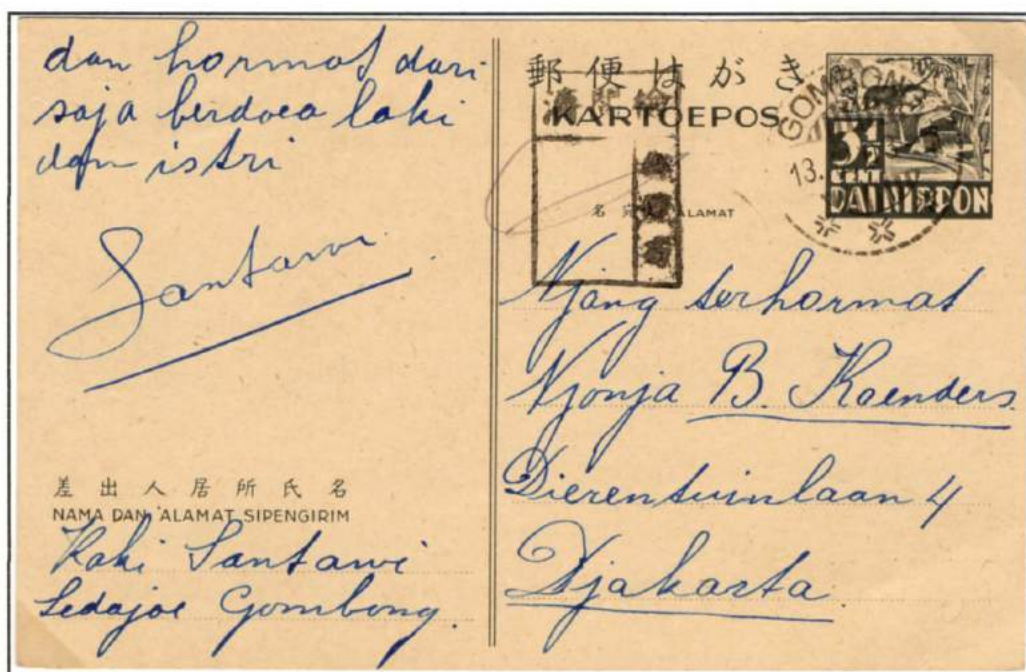 dan hormat dari
saja berdoea laki
dan istri
Santawi
差出人居所氏名
NAMA DAN ALAMAT SIPENGIRIM
Kaki Santawi
Sedajoe Gombong.
郵便はがき
KARTOEPOS
名宛 ALAMAT
GOMBONG
13.
3½
SENT
DAI NIPPON
Njang terhormat
Njonja B. Koenders
Dierentuinlaan 4
Djakarta